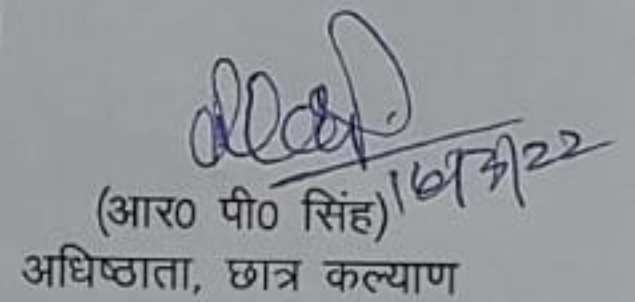 16/3/22
(आर० पी० सिंह)
अधिष्ठाता, छात्र कल्याण